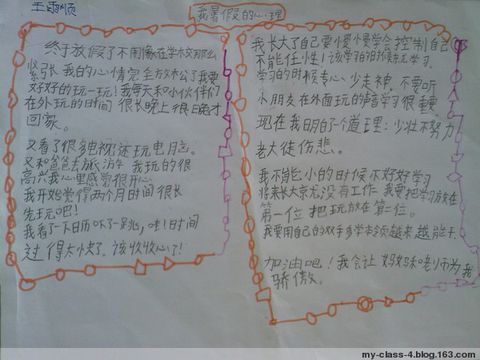 王雨顺
我暑假的心理
终于放假了不用像在学校那么
紧张 我的心情完全放松了我要
好好的玩一玩！我每天和小伙伴们
在外玩的日时间 很长晚上很晚才
回家。
又看了很多电视！还玩电月。
又和爸爸去旅 玩的很
高兴我心里感觉很开心
我开始觉得两个月时间很长
先玩吧！
我看了一下日历吓了一跳，哇！时间
过得太快了。该收收心了！
我长大了自己要慢慢学会控制自己
不能任性！该学习的时候就学习。
学习的时候专心 少走神，不要听
小朋友在外面玩的声音学习很重要
现在我明白了个道理：少壮不努力
老大徒伤悲。
我不能小的时候不好好学习
将来长大京尤没有工作。我要把学习放在
第一位 把玩放在第二位。
我要用自己的双手多学本领越来越能干。
加油吧！我会让妈妈 老师为我
骄傲。
my-class-4.blog.163.com